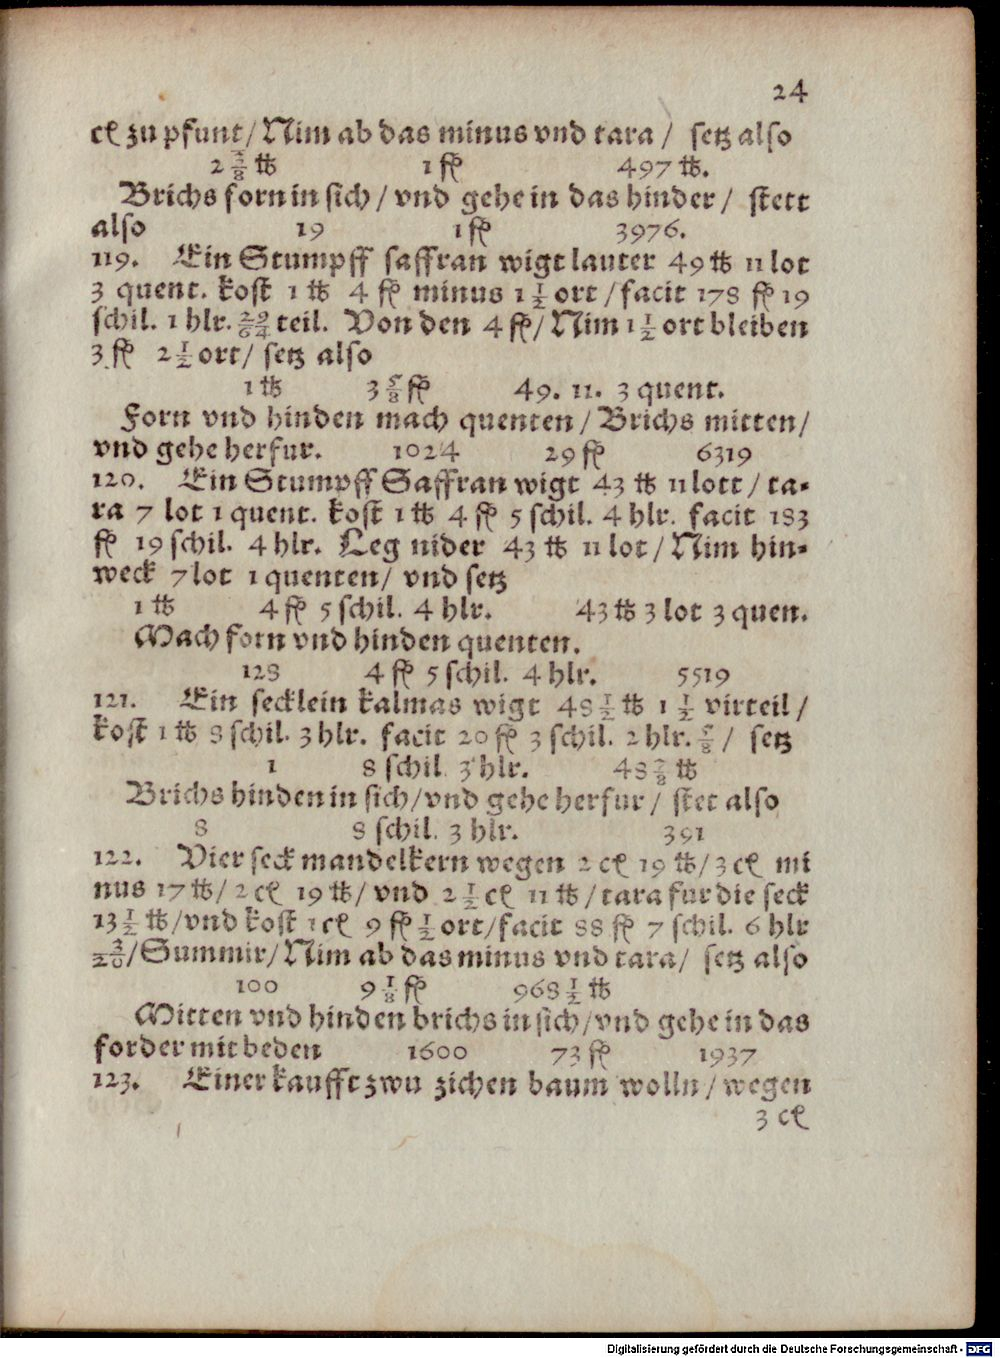 24
cℓ zu pfunt/ Nim ab das minus vnd tara/ setz also
2 3/8 ℔ 1 fl 497 ℔.
Brichs forn in sich/ vnd gehe in das hinder/ stett
also 19 1 fl 3976.
119. Ein Stumpff saffran wigt lauter 49 ℔ 11 lot
3 quent. kost 1 ℔ 4 fl minus 1 1/2 ort/ facit 178 fl 19
schil. 1 hlr. 29/64 teil. Von den 4 fl/ Nim 1 1/2 ort bleiben
3 fl 2 1/2 ort/ setz also
1 ℔ 3 5/8 fl 49. 11. 3 quent.
Forn vnd hinden mach quenten/ Brichs mitten/
vnd gehe herfur. 1024 29 fl 6319
120. Ein Stumpff Saffran wigt 43 ℔ 11 lott/ ta⸗
ra 7 lot 1 quent. kost 1 ℔ 4 fl 5 schil. 4 hlr. facit 183
fl 19 schil. 4 hlr. Leg nider 43 ℔ 11 lot/ Nim hin⸗
weck 7 lot 1 quenten/ vnd setz
1 ℔ 4 fl 5 schil. 4 hlr. 43 ℔ 3 lot 3 quen.
Mach forn vnd hinden quenten.
128 4 fl 5 schil. 4 hlr. 5519
121. Ein secklein kalmas wigt 48 1/2 ℔ 1 1/2 virteil/
kost 1 ℔ 8 schil. 3 hlr. facit 20 fl 3 schil. 2 hlr. 5/8/ setz
1 8 schil. 3 hlr. 48 7/8 ℔
Brichs hinden in sich/ vnd gehe herfur/ stet also
8 8 schil. 3 hlr. 391
122. Vier seck mandelkern wegen 2 cℓ 19 ℔/ 3 cℓ mi
nus 17 ℔/ 2 cℓ 19 ℔/ vnd 2 1/2 cℓ 11 ℔/ tara fur die seck
13 1/2 ℔/ vnd kost 1 cℓ 9 fl 1/2 ort/ facit 88 fl 7 schil. 6 hlr
3/20/ Summir/ Nim ab das minus vnd tara/ setz also
100 9 1/8 fl 968 1/2 ℔
Mitten vnd hinden brichs in sich/ vnd gehe in das
forder mit beden 1600 73 fl 1937
123. Einer kaufft zwu zichen baum wolln/ wegen
3 cℓ
Digitalisierung gefördert durch die Deutsche Forschungsgemeinschaft - DFG